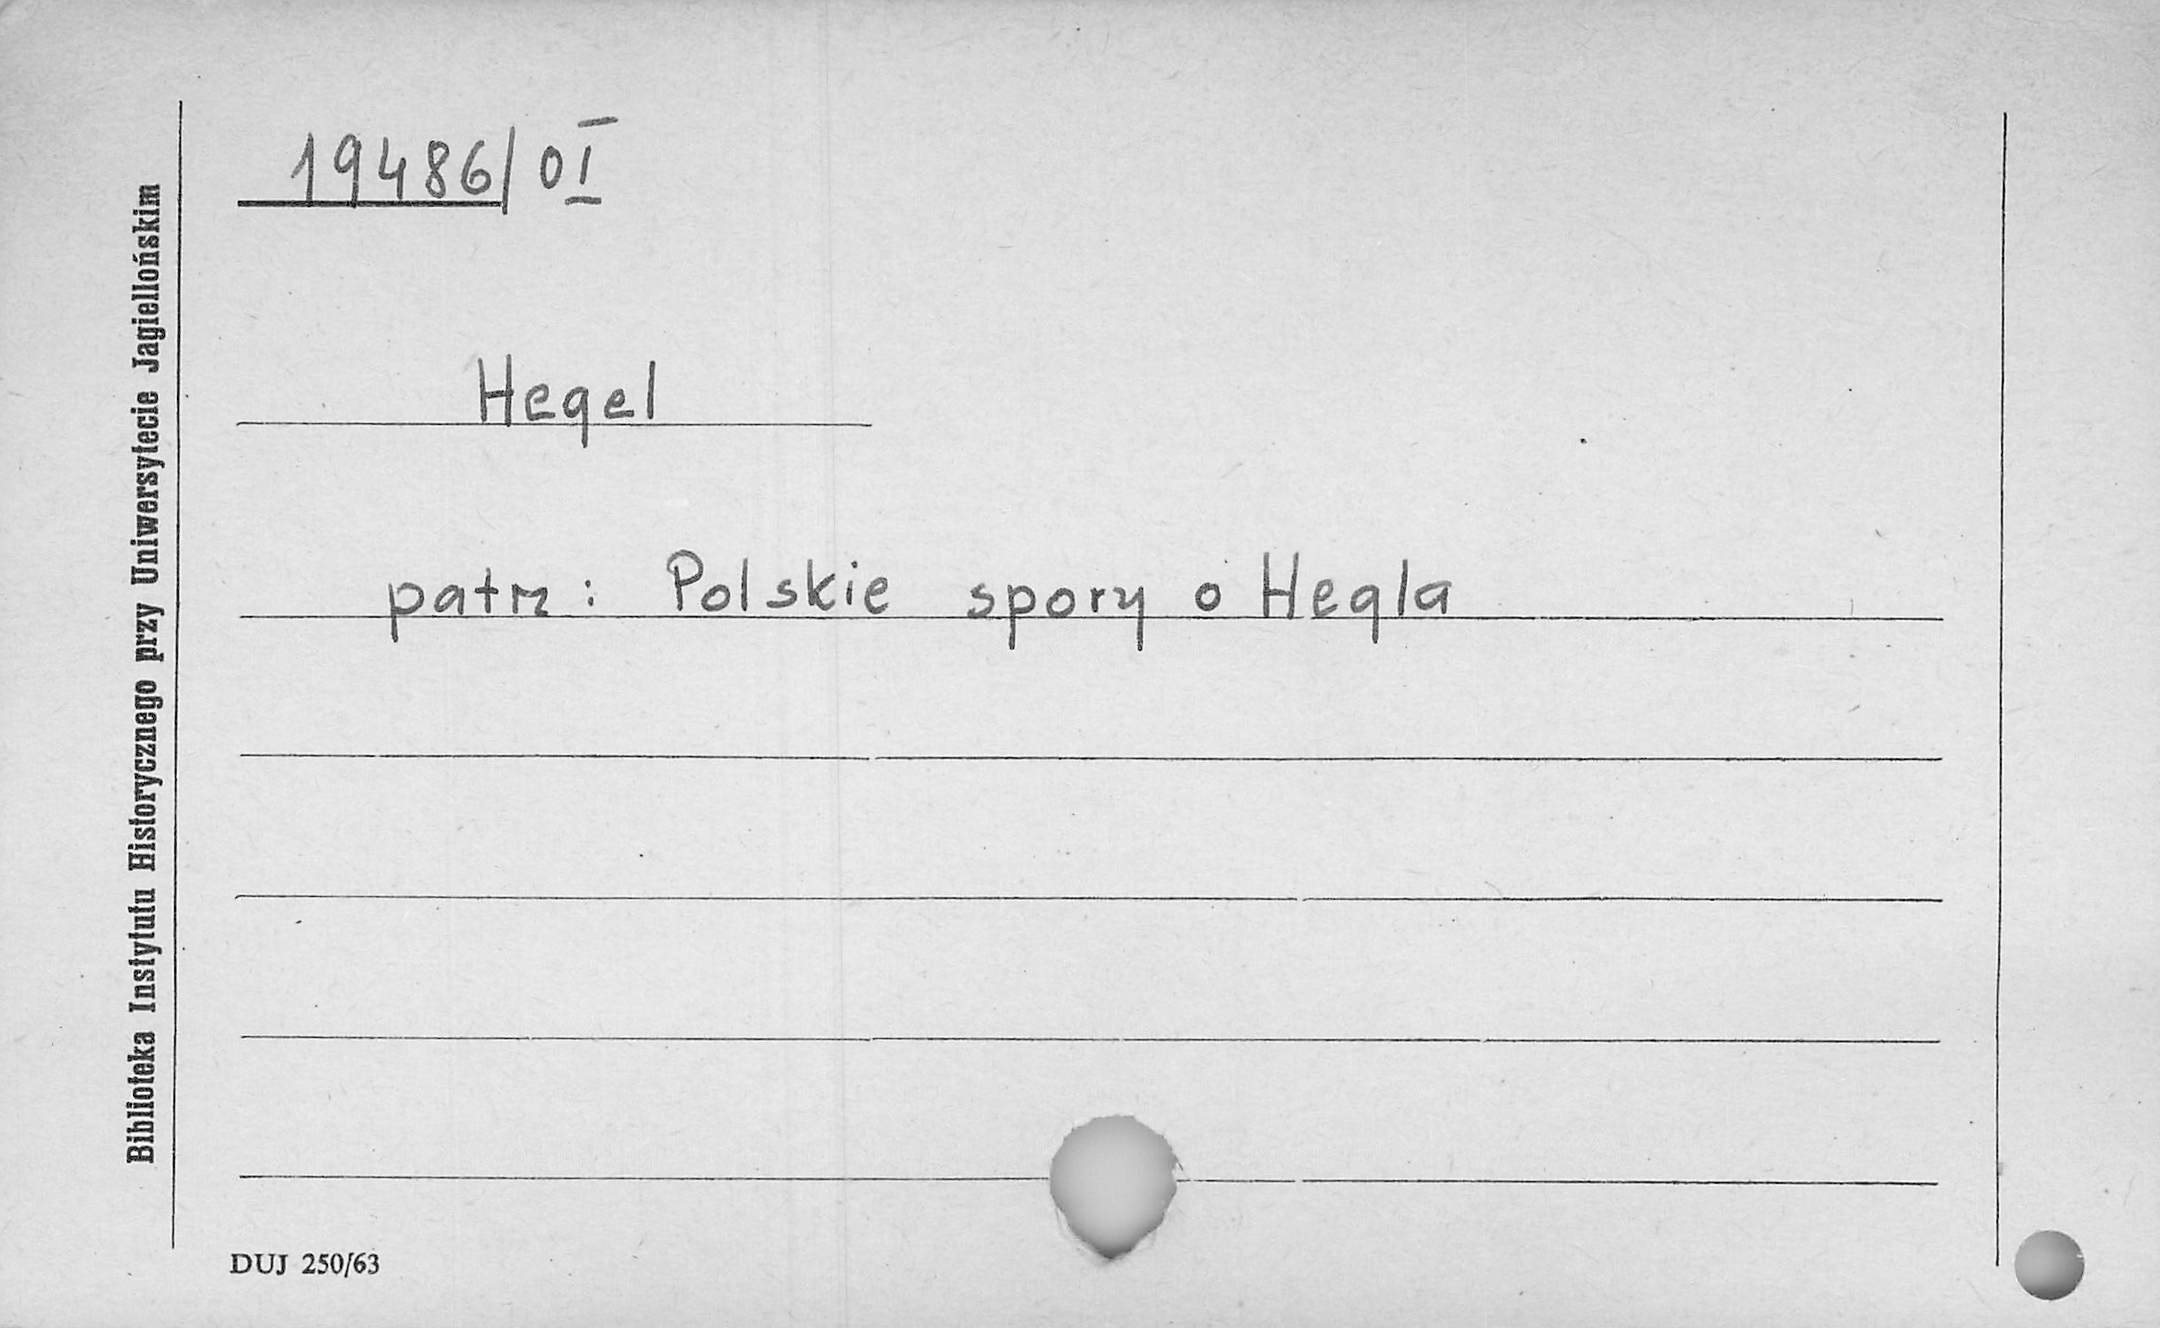 19486/OI
Hegel
patrz: Polskie spory o Hegla
Biblioteka Instytutu Historycznego przy Uniwersytecie Jagiellońskim
DUJ 250/63